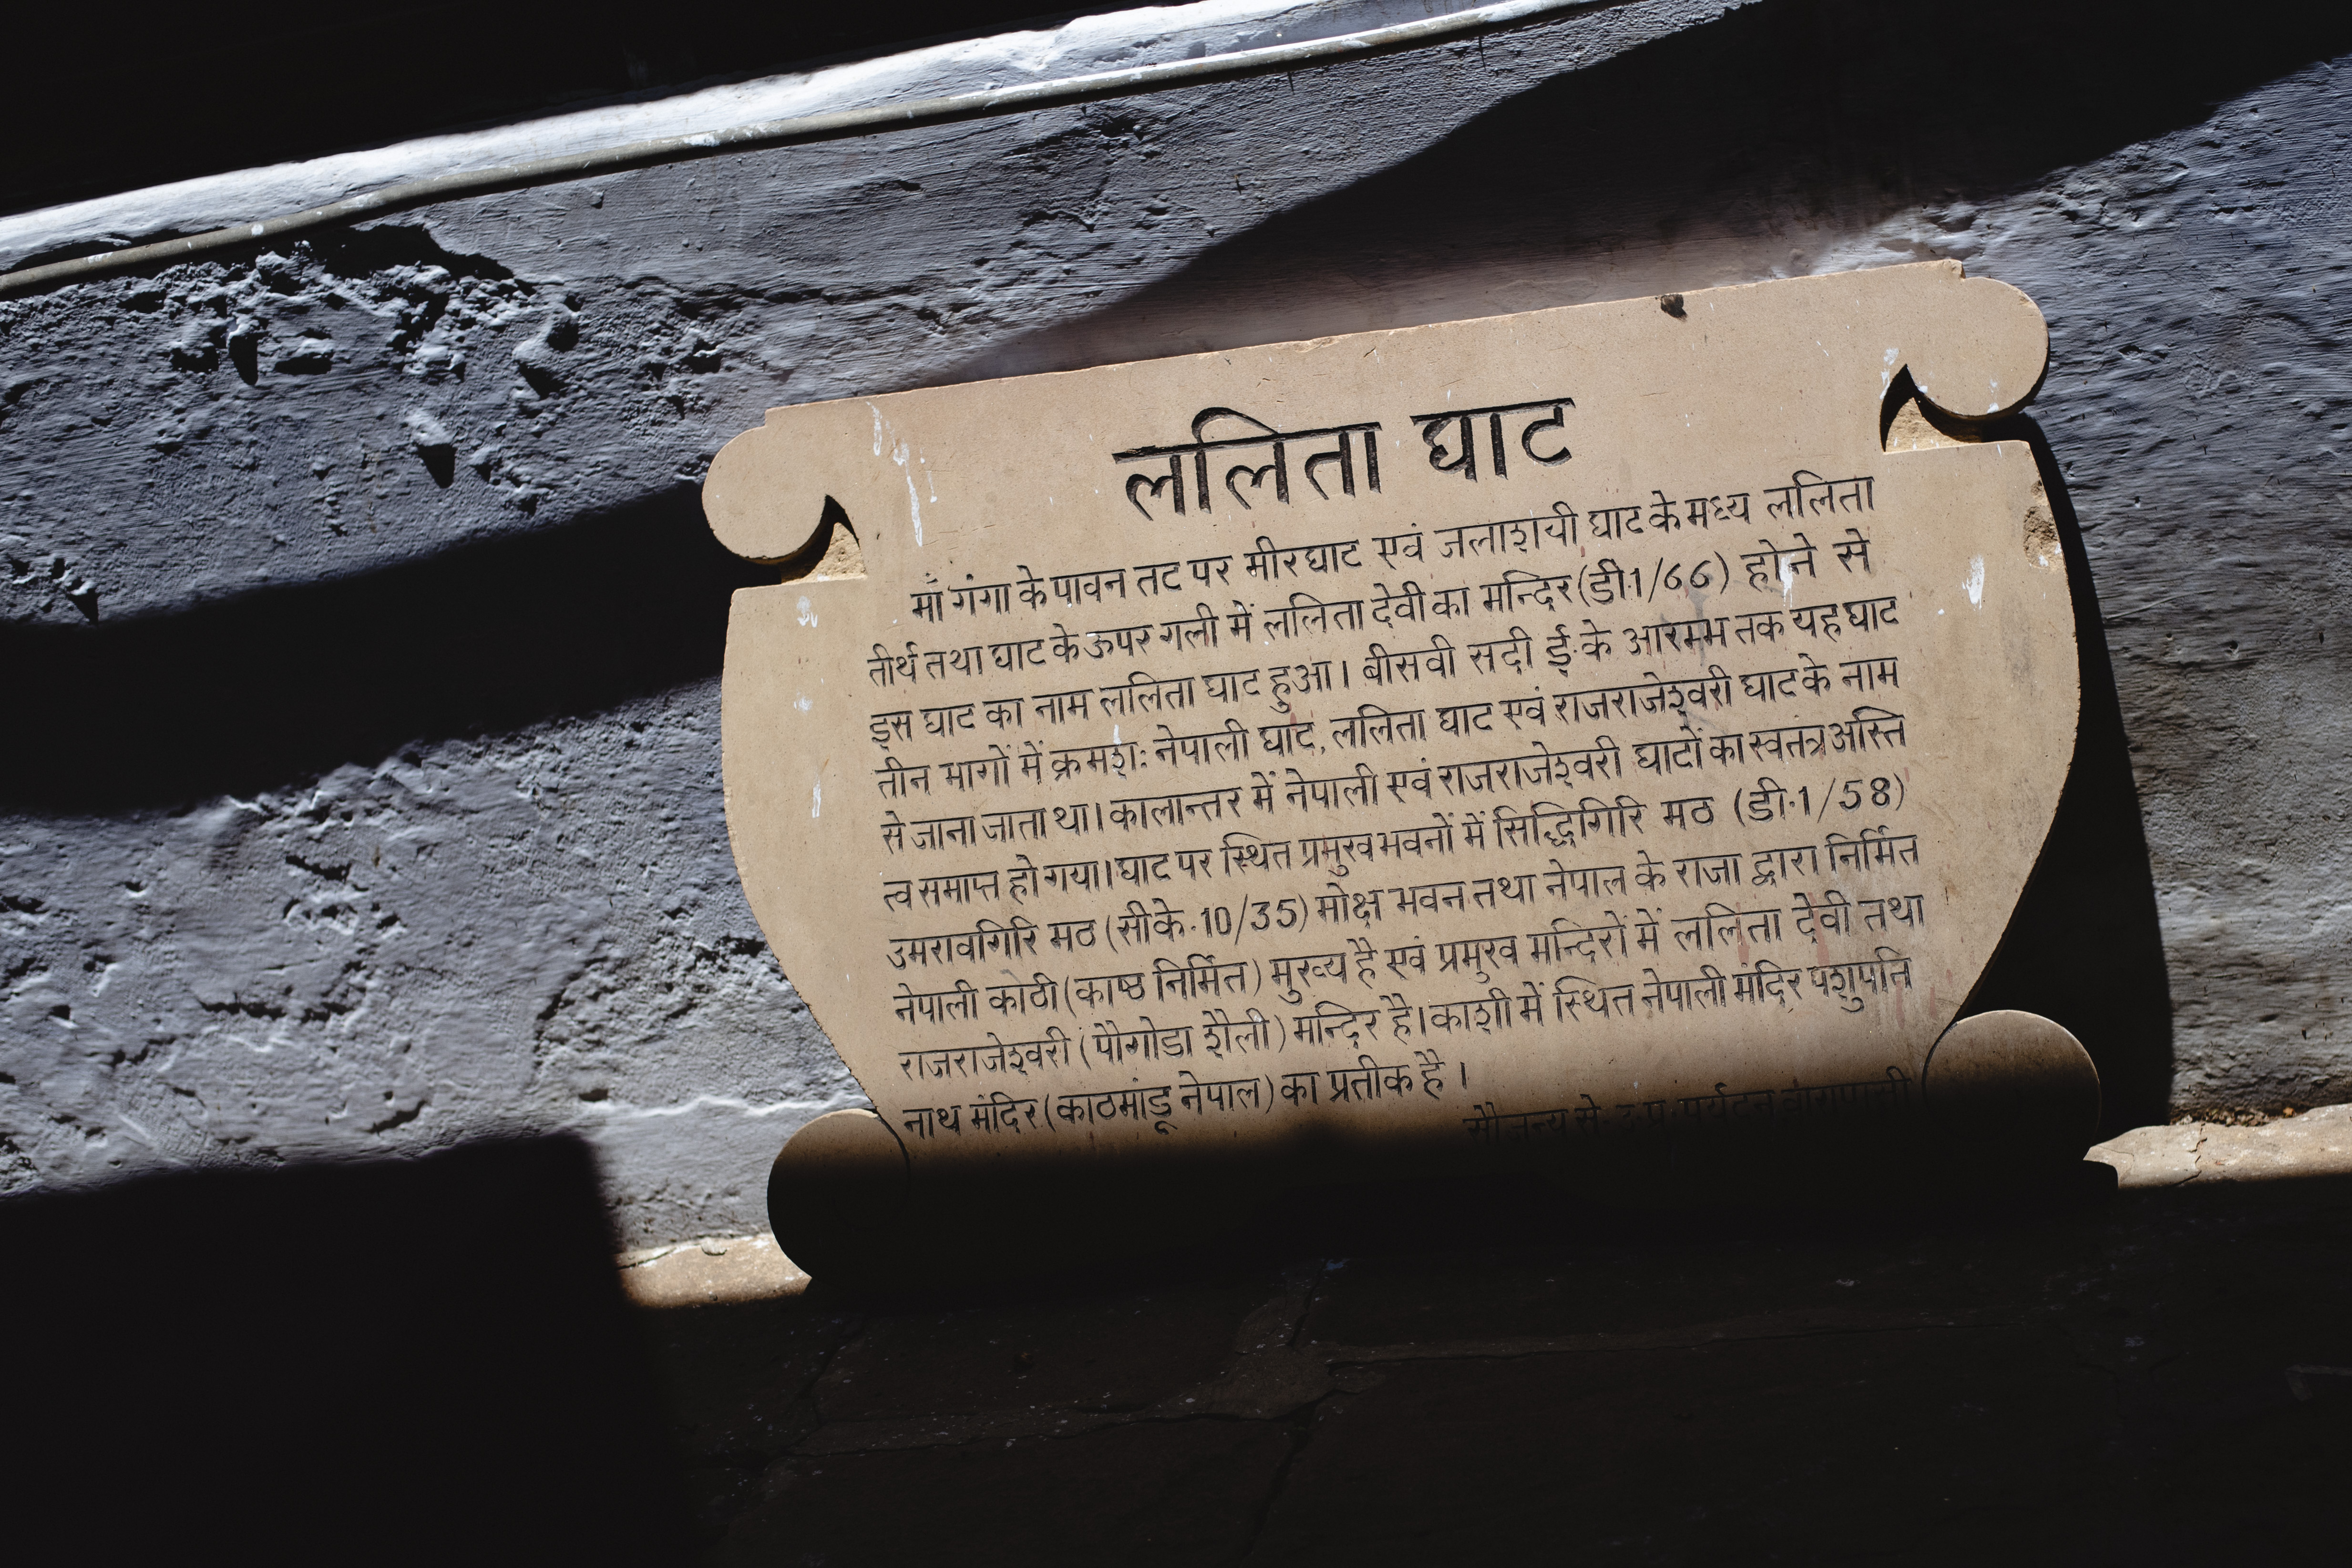 ललिता घाट
माँ गंगा के पावन तट पर मीरघाट एवं जलाशयी घाट के मध्य ललिता
तीर्थ तथा घाट के ऊपर गली में ललिता देवी का मन्दिर (डी1/66) होने से
इस घाट का नाम ललिता घाट हुआ। बीसवी सदी ई॰ के आरम्भ तक यह घाट
तीन भागों में क्रमश: नेपाली घाट, ललिता घाट एवं राजराजेश्वरी घाट के नाम
से जाना जाता था। कालान्तर में नेपाली एवं राजराजेश्वरी घाटों का स्वतंत्र अस्ति
त्व समाप्त हो गया। घाट पर स्थित प्रमुख भवनों में सिद्धिगिरि मठ (डी॰1/58)
उमरावगिरि मठ (सीके॰10/35) मोक्ष भवन तथा नेपाल के राजा द्वारा निर्मित
नेपाली कोठी (काष्ठ निर्मित) मुख्य है एवं प्रमुख मन्दिरों में ललिता देवी तथा
राजराजेश्वरी (पौगोडा शैली) मन्दिर है। काशी में स्थित नेपाली मंदिर पशुपति
नाथ मंदिर (काठमांडू नेपाल) का प्रतीक है।
सौजन्य से: उ॰प्र॰ पर्यटन वाराणसी